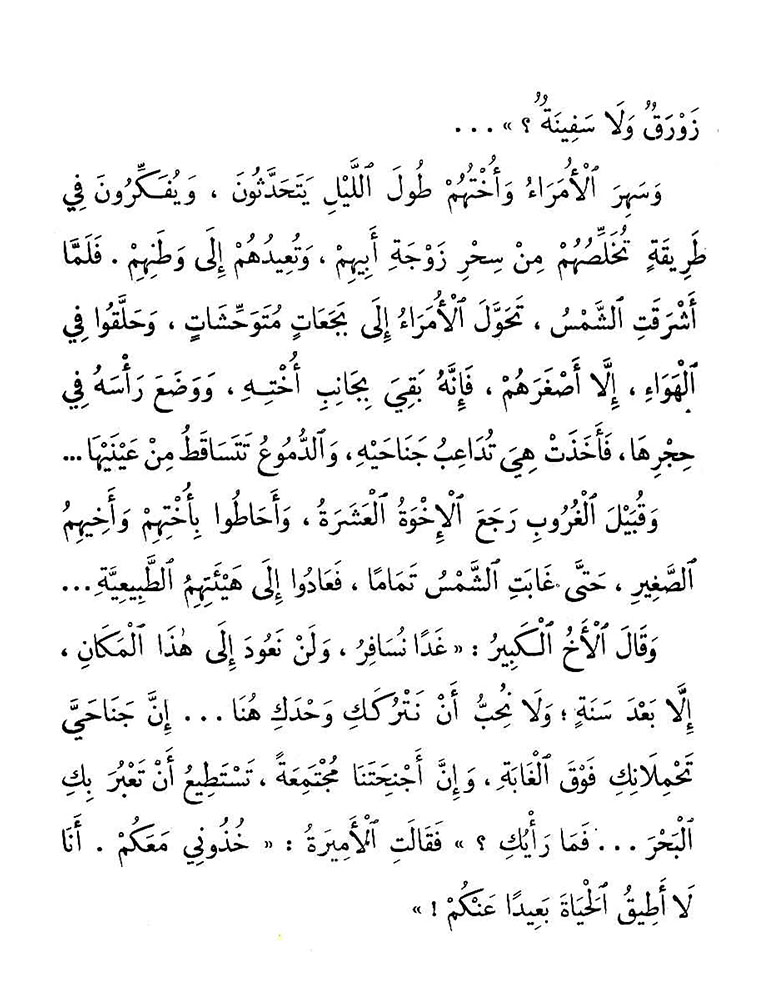 زَوْرَقٌ وَلَا سَفِينَةٌ ؟ » ...
وَسَهِرَ ٱلْأُمَرَاءُ وَأُخْتُهُمْ طُولَ ٱللَّيْلِ يَتَحَدَّثُونَ ، وَيُفَكِّرُونَ فِي
طَرِيقَةٍ تُخَلِّصُهُمْ مِنْ سِحْرِ زَوْجَةِ أَبِيهِمْ ، وَتُعِيدُهُمْ إِلَى وَطَنِهِمْ . فَلَمَّا
أَشْرَقَتِ ٱلشَّمْسُ ، تَحَوَّلَ ٱلْأُمَرَاءُ إِلَى بَجَعَاتٍ مُتَوَحِّشَاتٍ ، وَحَلَّقُوا فِي
ٱلْهَوَاءِ ، إِلَّا أَصْغَرَهُمْ ، فَإِنَّهُ بَقِيَ بِجَانِبِ أُخْتِهِ ، وَوَضَعَ رَأْسَهُ فِي
حِجْرِهَا ، فَأَخَذَتْ هِيَ تُدَاعِبُ جَنَاحَيْهِ ، وَٱلدُّمُوعُ تَتَسَاقَطُ مِنْ عَيْنَيْهَا ...
وَقُبَيْلَ ٱلْغُرُوبِ رَجَعَ ٱلْإِخْوَةُ ٱلْعَشَرَةُ ، وَأَحَاطُوا بِأُخْتِهِمْ وَأَخِيهِمُ
ٱلصَّغِيرِ ، حَتَّى غَابَتِ ٱلشَّمْسُ تَمَامًا ، فَعَادُوا إِلَى هَيْئَتِهِمُ ٱلطَّبِيعِيَّةِ ...
وَقَالَ ٱلْأَخُ ٱلْكَبِيرُ : « غَدًا نُسَافِرُ ، وَلَنْ نَعُودَ إِلَى هٰذَا ٱلْمَكَانِ ،
إِلَّا بَعْدَ سَنَةٍ ؛ وَلَا نُحِبُّ أَنْ نَتْرُكَكِ وَحْدَكِ هُنَا ... إِنَّ جَنَاحَيَّ
تَحْمِلَانِكِ فَوْقَ ٱلْغَابَةِ ، وَإِنَّ أَجْنِحَتَنَا مُجْتَمِعَةً ، تَسْتَطِيعُ أَنْ تَعْبُرَ بِكِ
ٱلْبَحْرَ ... فَمَا رَأْيُكِ ؟ » فَقَالَتِ ٱلْأَمِيرَةُ : « خُذُونِي مَعَكُمْ . أَنَا
لَا أُطِيقُ ٱلْحَيَاةَ بَعِيدًا عَنْكُمْ ! »